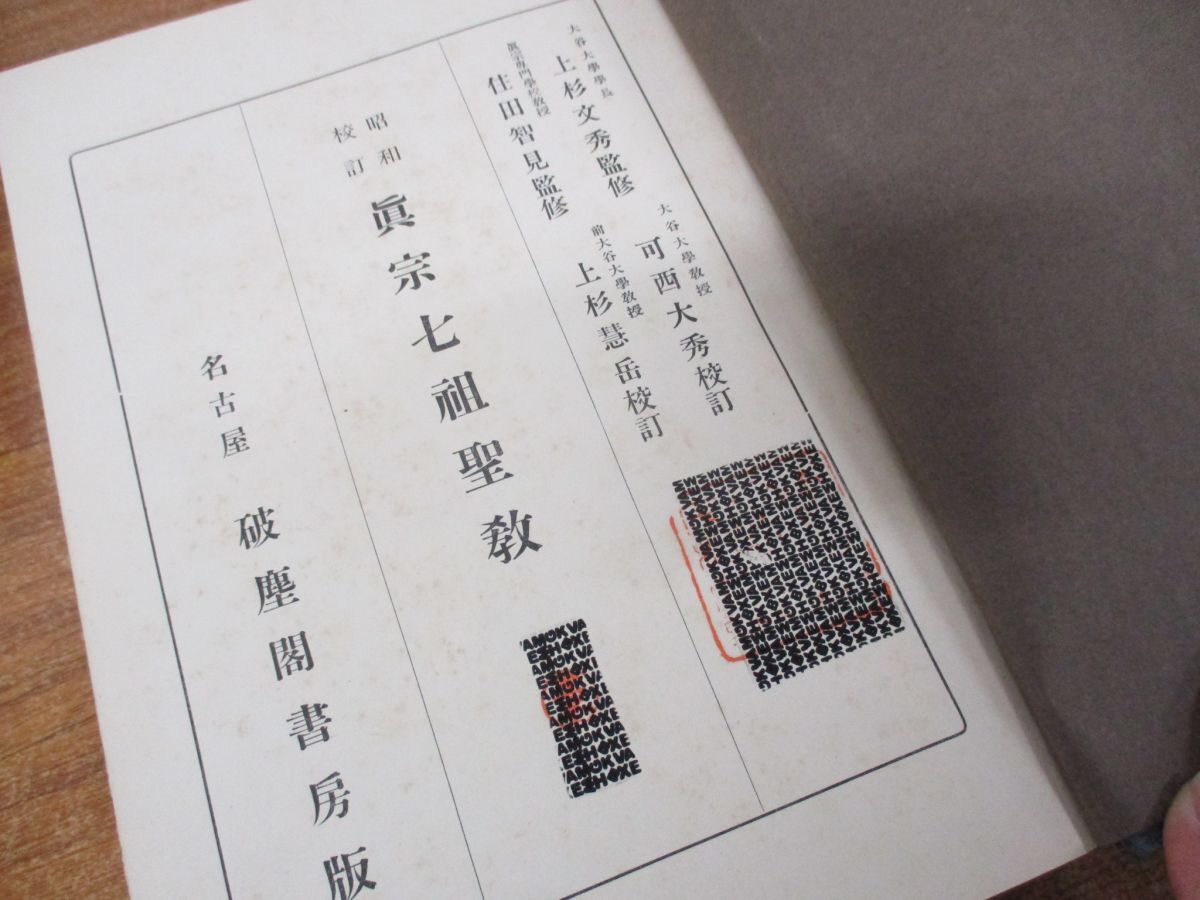 大谷大學學長
上杉文秀監修
眞宗專門學校敎授
住田智見監修
大谷大學敎授
可西大秀校訂
前大谷大學敎授
上杉慧岳校訂
昭和
校訂
眞宗七祖聖敎
名古屋 破塵閣書房版